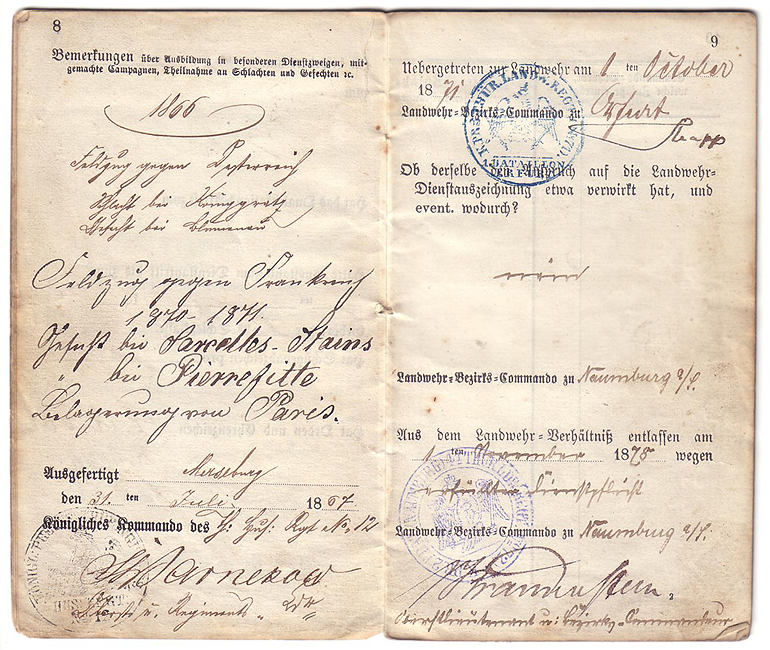 8
Bemerkungen über Ausbildung in besonderen Dienstzweigen, mit-
gemachte Campagnen, Theilnahme an Schlachten und Gefechten ꝛc.
1866
Feldzug gegen Oesterreich
Schlacht bei Königgrätz
Gefecht bei Blumenau
Feldzug gegen Frankreich
1870-1871.
Gefecht bei Sarcelles-Stains
" bei Pierrefitte
Belagerung von Paris.
Ausgefertigt Merseburg
den 31. ten Juli 1867.
Königliches Kommando des Th: Hus: Rgt No. 12
Oberst u. Regiments-
9
Uebergetreten zur Landwehr am 1 ten October
1871
Landwehr-Bezirks-Commando zu Erfurt
BATAILLON
Ob derselbe den Anspruch auf die Landwehr-
Dienstauszeichnung etwa verwirkt hat, und
event. wodurch?
nein
Landwehr-Bezirks-Commando zu Naumburg a/S.
Aus dem Landwehr-Verhältniß entlassen am
1 ten November 1875 wegen
erfüllter Dienstpflicht
Landwehr-Bezirks-Commando zu Naumburg a/S.
Oberstlieutenant u: Bezirks-Commandeur